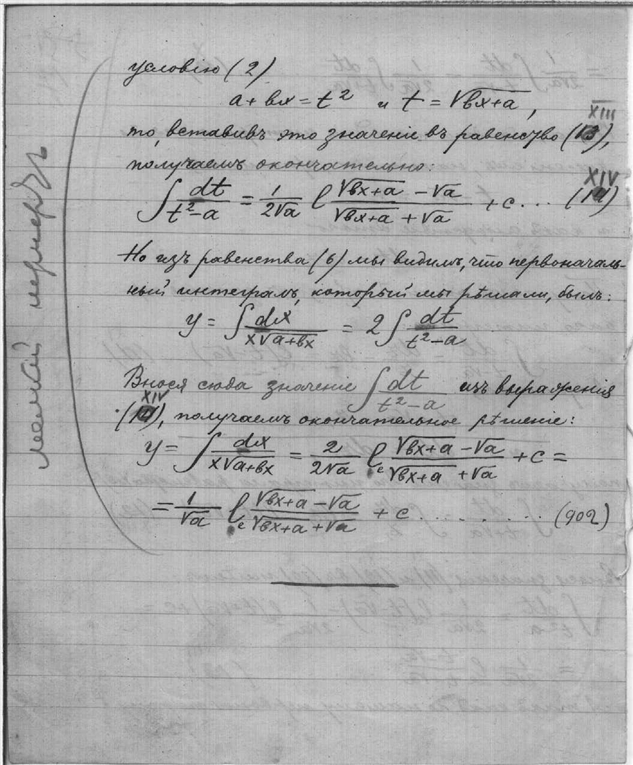 условію (2)
a + bx = t² и t = √bx+a,
XIII
то, вставивъ это значеніе въ равенство (13),
получаемъ окончательно:
XIV
∫ dt / t²-a = 1 / 2√a l √bx+a - √a / √bx+a + √a + c... (14)
Но изъ равенства (6) мы видимъ, что первоначаль-
ный интегралъ, который мы рѣшали, былъ:
y = ∫ dx / x√a+bx = 2 ∫ dt / t²-a
Внося сюда значеніе ∫ dt / t²-a изъ выраженія
XIV
(14), получаемъ окончательное рѣшеніе:
y = ∫ dx / x√a+bx = 2 / 2√a lₑ √bx+a - √a / √bx+a + √a + c =
= 1 / √a lₑ √bx+a - √a / √bx+a + √a + c . . . . . . . . . (902)
мелкій